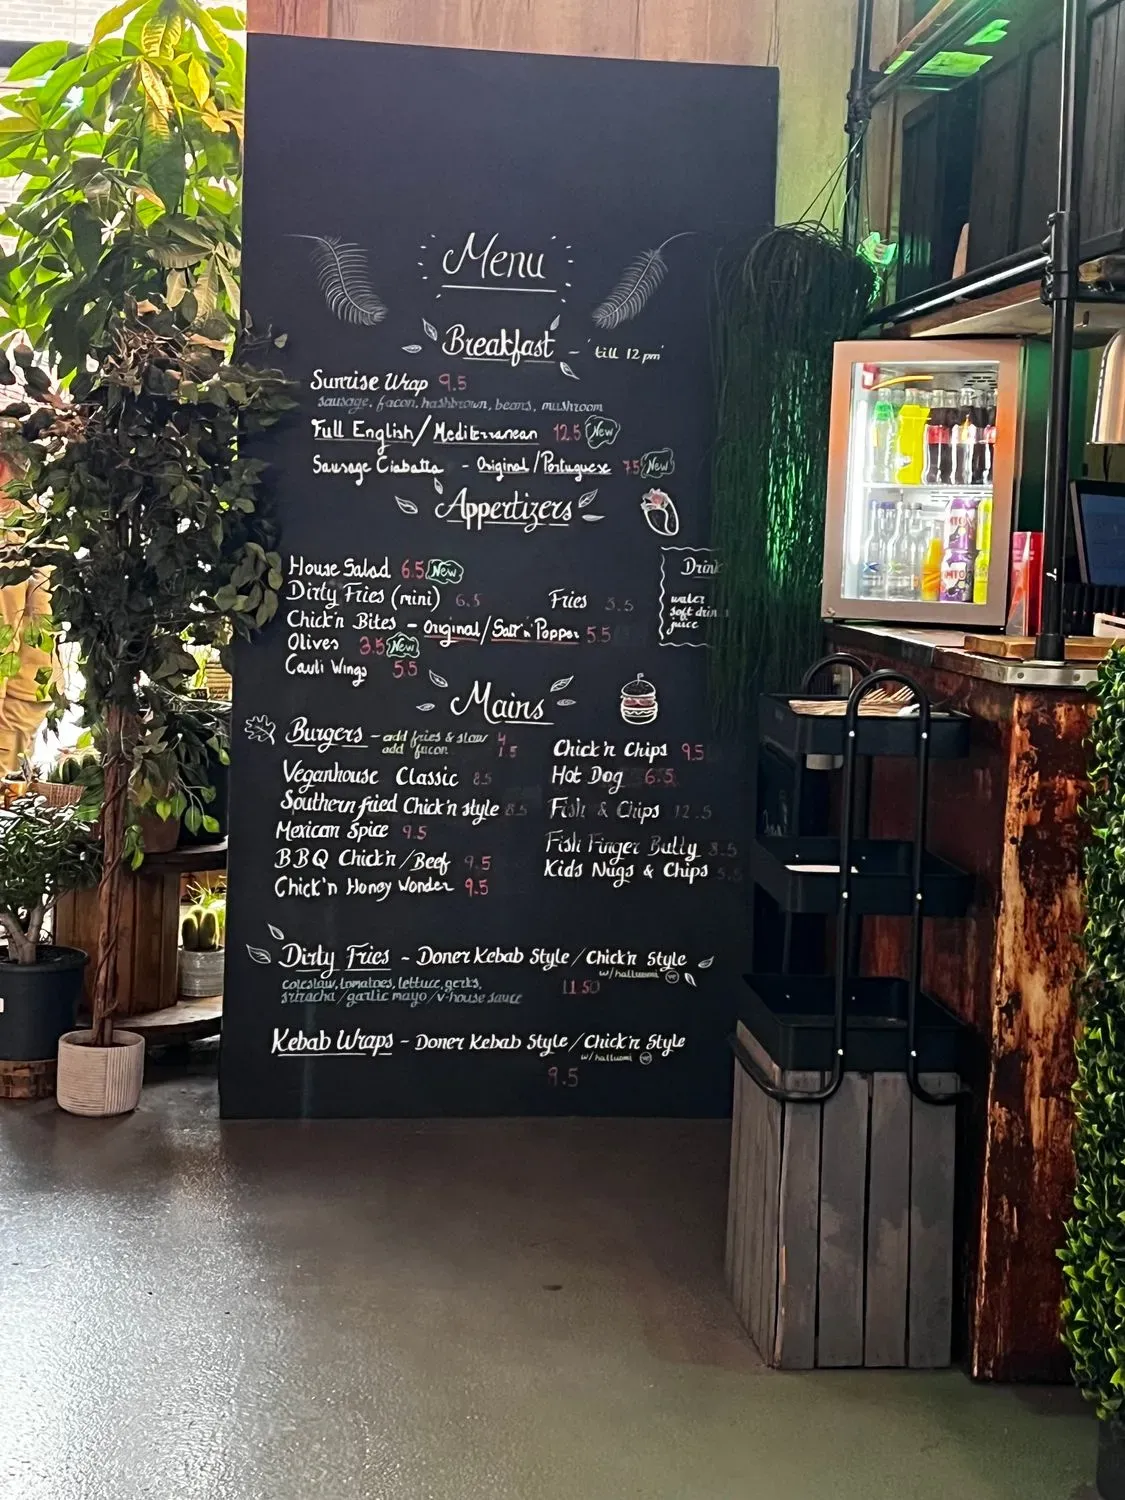 Menu
Breakfast - 'till 12pm'
Sunrise Wrap 9.5
sausage, facon, hashbrown, beans, mushroom
Full English/Mediterranean 12.5 New
Sausage Ciabatta - Original/Portuguese 7.5 New
Appertizers
House Salad 6.5 New
Dirty Fries (mini) 6.5
Fries 3.5
Chick'n Bites - Original/Salt'n'Pepper 5.5
Olives 3.5 New
Cauli Wings 5.5
Drink
water
soft drin
juice
Mains
Burgers - add fries & slaw 4
add facon 1.5
Veganhouse Classic 8.5
Southern fried Chick'n style 8.5
Mexican Spice 9.5
BBQ Chick'n/Beef 9.5
Chick'n Honey Wonder 9.5
Chick'n Chips 9.5
Hot Dog 6.5
Fish & Chips 12.5
Fish Finger Butty 8.5
Kids Nugs & Chips 5.5
Dirty Fries - Doner Kebab Style/Chick'n Style
w/halluomi
coleslaw, tomatoes, lettuce, gerks,
sriracha/garlic mayo/v-house sauce
11.50
Kebab Wraps - Doner Kebab Style/Chick'n Style
w/halluomi
9.5